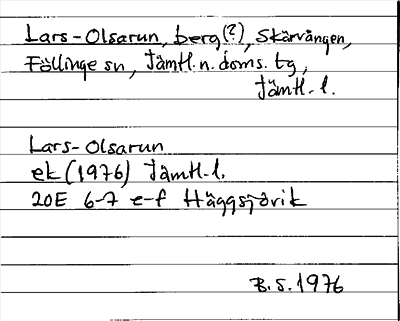 Lars-Olsarun, berg(?), Skärvången,
Föllinge sn, Jämtl.n.doms.tg,
Jämtl.l.
Lars-Olsarun
ek(1976) Jämtl.l.
20E 6-7 e-f Häggsjövik
B.S.1976